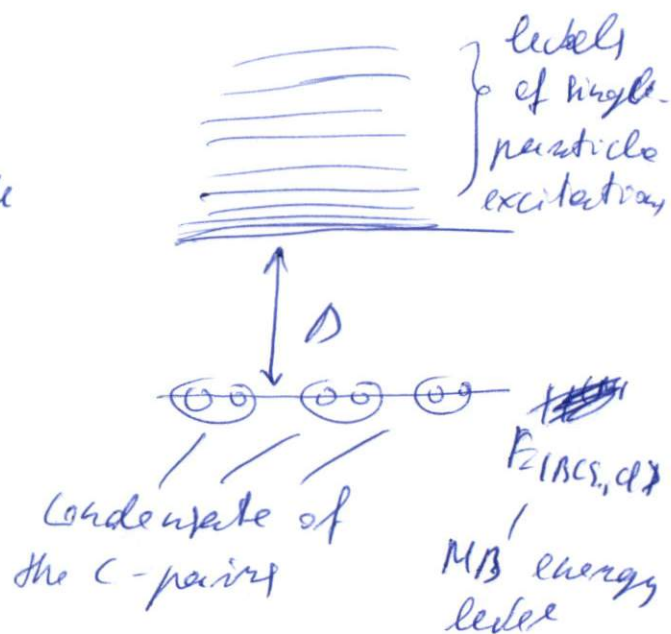 levels
of single-
particle
excitations
Δ
Condensate of
the C-pairs
MB energy
level